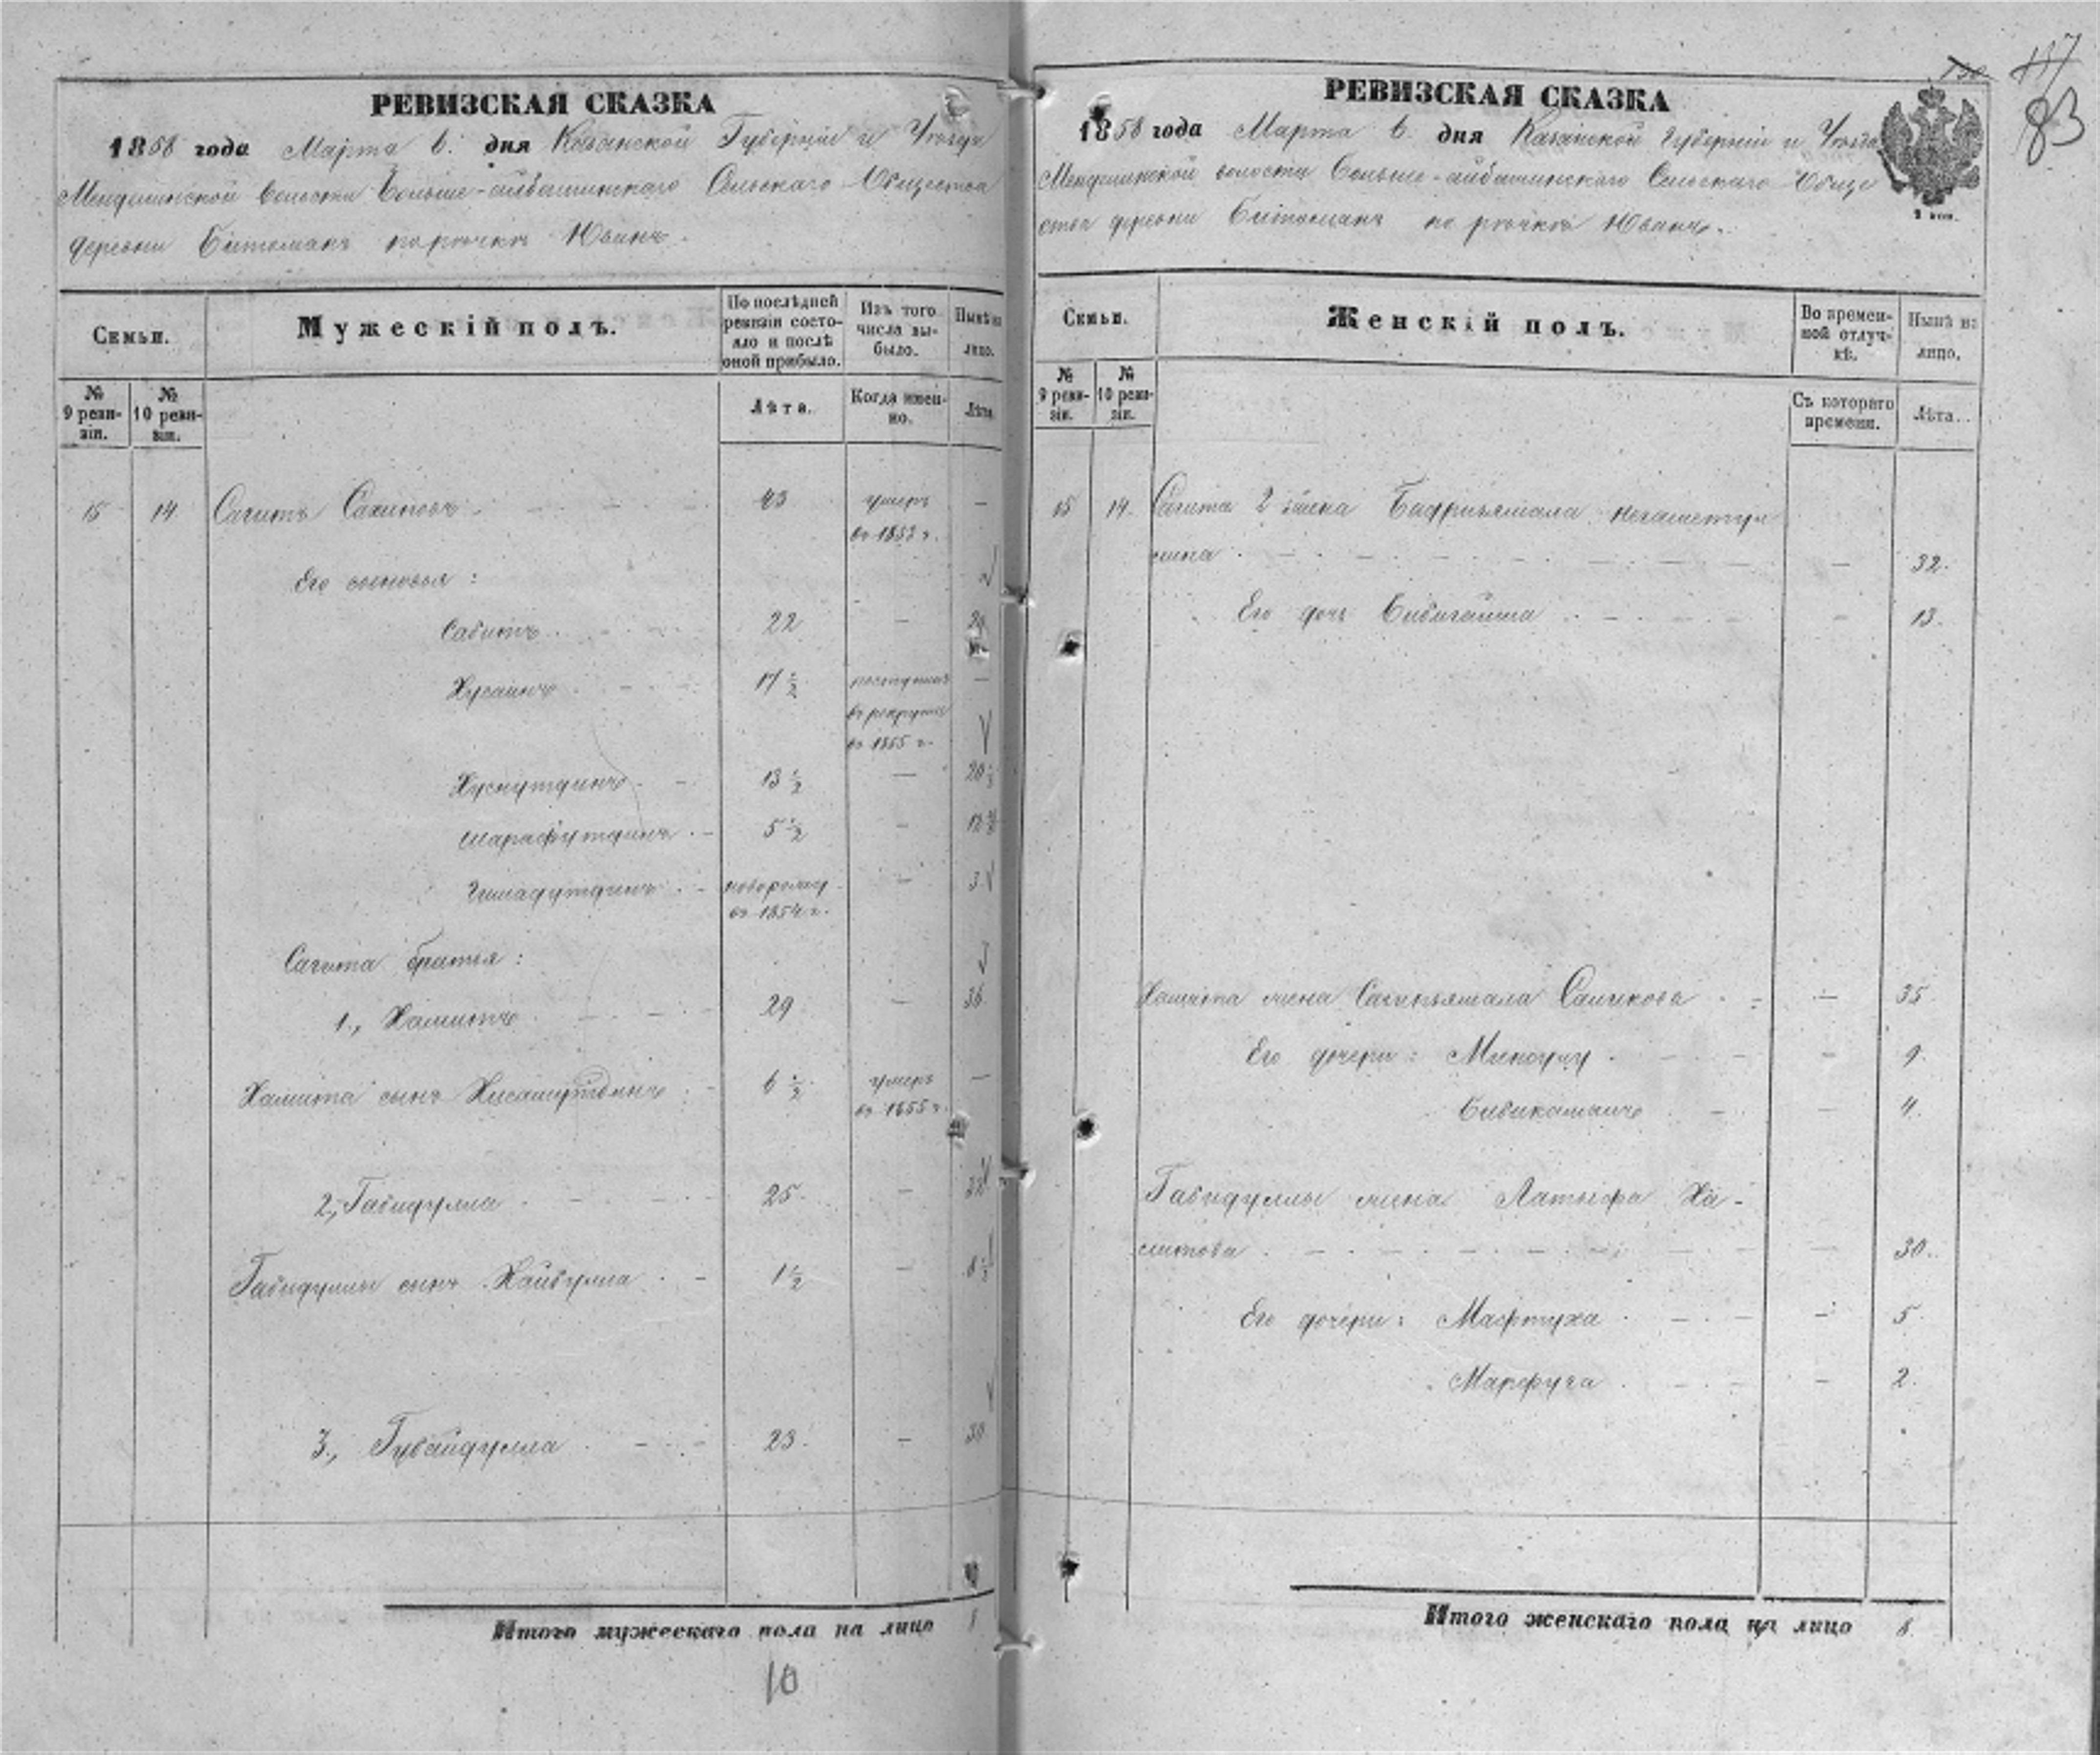 РЕВИЗСКАЯ СКАЗКА
1858 года Марта 6. дня Казанской Губернiи и Уѣзда
Мендшинской волости Больше-айбашинскаго Сельскаго Общества
деревни Битоманъ по рѣчкѣ
Семьи.
Мужескій полъ.
По послѣдней ревизіи состояло и послѣ оной прибыло.
Изъ того числа выбыло.
Нынѣ на лицо.
№ 9 ревизіи.
№ 10 ревизіи.
Лѣта.
Когда именно.
Лѣта.
15 14 Сагитъ 43 умеръ —
въ 1857 г.
Его сыновья:
Сабитъ 22 — 29
Хусаинъ 17 ½ поступилъ —
въ рекруты
въ 1855 г.
Хуснутдинъ 13 ½ — 20 ½
Шарафутдинъ 5 ½ — 12 ½
новорожд — 3
въ 1854 г.
Сагита братья:
1., Хамитъ 29 — 36
Хамита сынъ Хисамутдинъ 6 ½ умеръ —
въ 1855 г.
2., Габидулла 25 — 32
Габидуллы сынъ Хайбулла 1 ½ — 8 ½
3., Губайдулла 23 — 30
Итого мужескаго пола на лицо 8
10
137
83
РЕВИЗСКАЯ СКАЗКА
1858 года Марта 6. дня Казанской Губернiи и Уѣзда
Мендшинской волости Больше-айбашинскаго Сельскаго Обще
ства деревни Битоманъ по рѣчкѣ
Семьи.
Женскій полъ.
Во временной отлучкѣ.
Нынѣ на лицо.
№ 9 ревизіи.
№ 10 ревизіи.
Съ котораго времени.
Лѣта.
15 14. Сагита 2 жена
— 32.
Его дочь Бибигайша — 13.
Хамита жена Садикова — 35
Его дочери: — 9.
— 4.
Габидуллы жена Латыфа Ха-
митова — 30.
Его дочери: Мафтуха — 5
Марфуга — 2.
Итого женскаго пола на лицо 8.